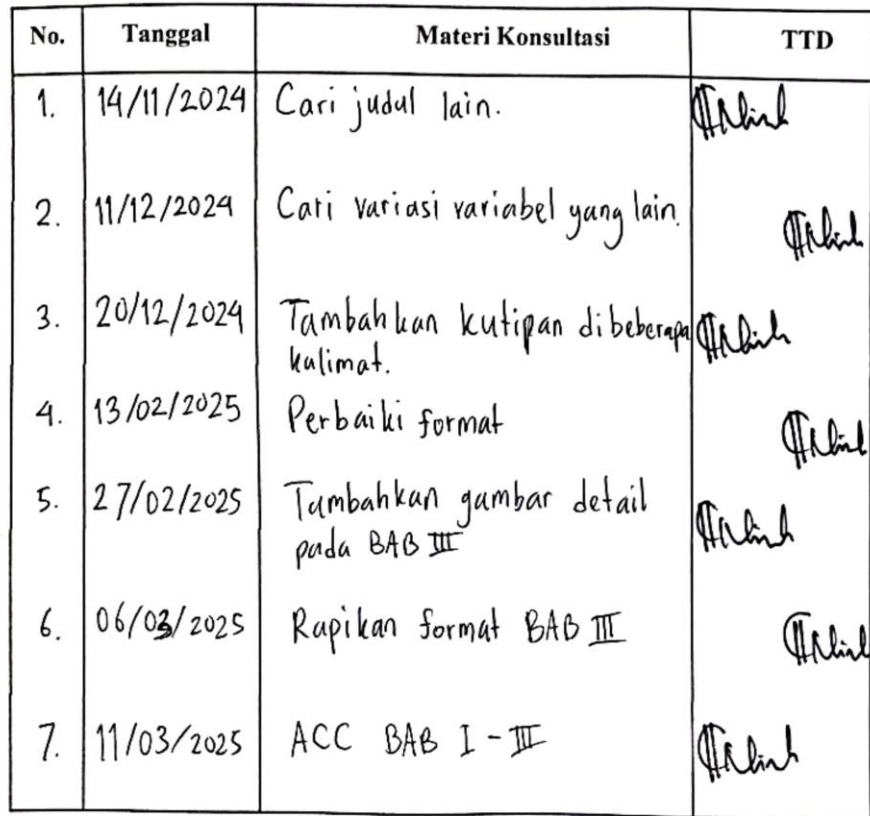 No. Tanggal Materi Konsultasi TTD
1. 14/11/2024 Cari judul lain.
2. 11/12/2024 Cari variasi variabel yang lain.
3. 20/12/2024 Tambahkan kutipan dibeberapa
kalimat.
4. 13/02/2025 Perbaiki format
5. 27/02/2025 Tambahkan gambar detail
pada BAB III
6. 06/03/2025 Rapikan format BAB III
7. 11/03/2025 ACC BAB I - III